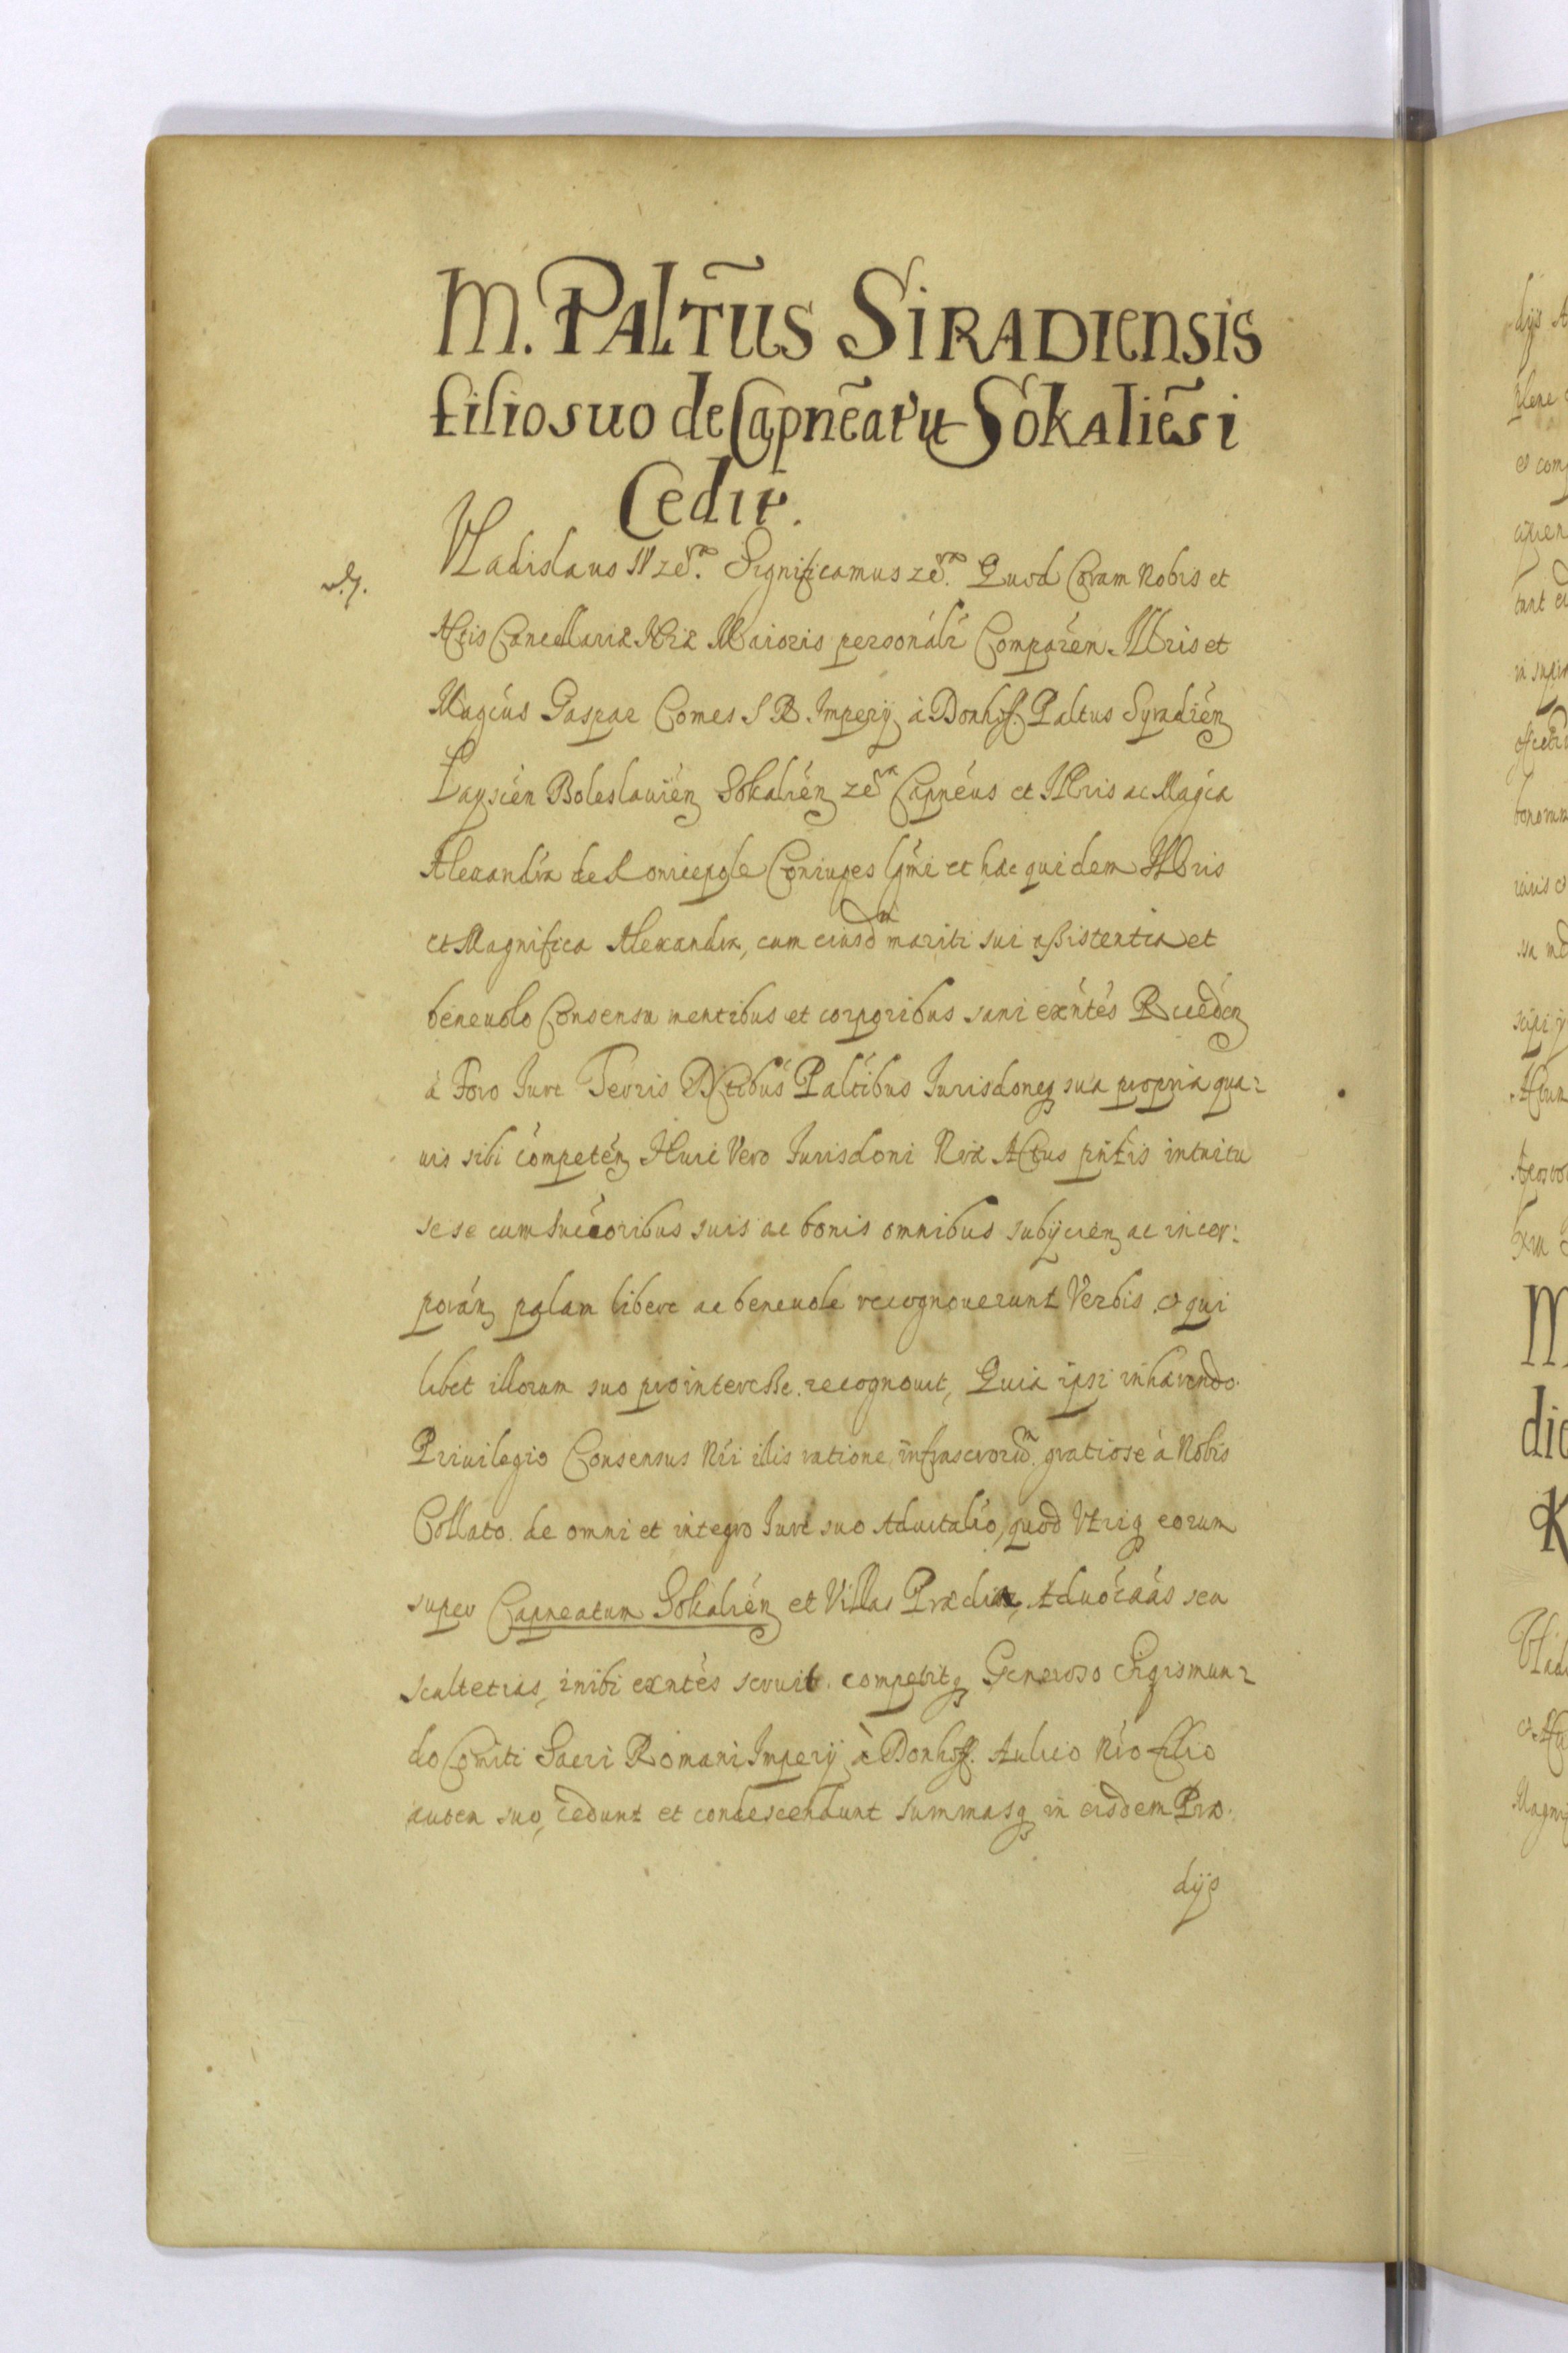 M. PALTŨS SIRADIENSIS
filio suo de Capnẽatu Sokaliẽsi
Cedit.
Vladislaus IV zẽ. Significamus zẽ. Quod Coram Nobis et
Actis Cancellariæ Nræ Maioris personálr Comparén Illris et
Magcus Gaspar Comes S R Imperÿ à Donhoff Paltus Syradién
Boleslauién Sokalién zẽ Capnéus et Illris ac Magca
Alexandra de Koniecpole Coniuges lgmi et hæc quidem Illris
et Magnifica Alexandra, cum eiusdm mariti sui assistentia et
beneuolo Consensu mentibus et corporibus sani exntes Recedén
à Foro Iure Terris Paltibus Iurisdoneq sua propria qua=
uis sibi competén Huic Vero Iurisdoni Nræ Actus pntis intuitu
sese cum succoribus suis ac bonis omnibus subijcién ac incor:
porán palam libere ac beneuole recognouerunt Verbis. et qui
libet illorum suo pro interesse. recognouit, Quia ipsi inhærendo.
Priuilegio Consensus Nri illis ratione infrascrorum. gratiose à Nobis
Collato. de omni et integro Iure suo Aduitalio, quod Vtriq eorum
super Capneatum Sokalién et Villas Prædia, Aduocaas seu
scultetias, inibi exntés seruit. competitq Generoso Sigismun=
do Comiti Sacri Romani Imperÿ à Donhoff. Aulico Nro filio
autem suo, cedunt et condescendunt summasq in eisdem Præ.
dijs